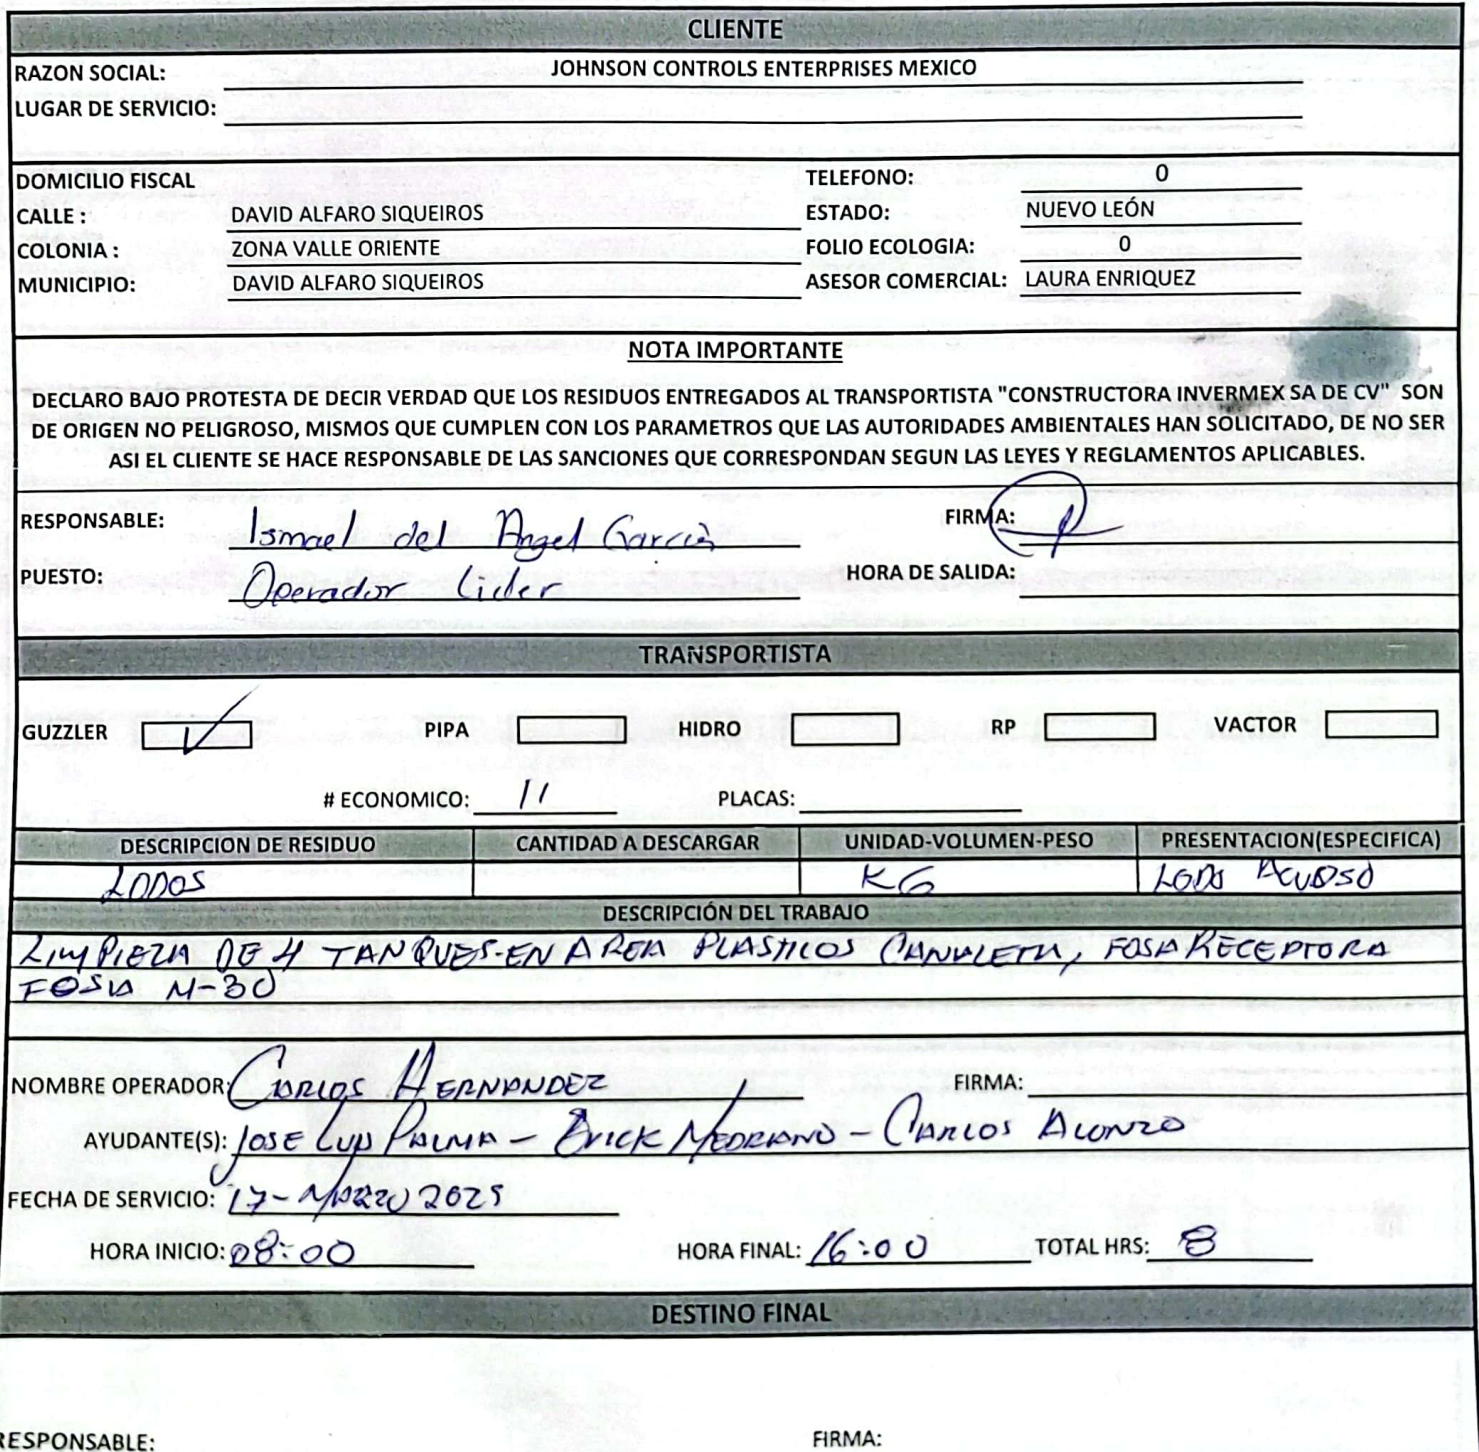 CLIENTE
RAZON SOCIAL: JOHNSON CONTROLS ENTERPRISES MEXICO
LUGAR DE SERVICIO:
DOMICILIO FISCAL TELEFONO: 0
CALLE : DAVID ALFARO SIQUEIROS ESTADO: NUEVO LEÓN
COLONIA : ZONA VALLE ORIENTE FOLIO ECOLOGIA: 0
MUNICIPIO: DAVID ALFARO SIQUEIROS ASESOR COMERCIAL: LAURA ENRIQUEZ
NOTA IMPORTANTE
DECLARO BAJO PROTESTA DE DECIR VERDAD QUE LOS RESIDUOS ENTREGADOS AL TRANSPORTISTA "CONSTRUCTORA INVERMEX SA DE CV" SON
DE ORIGEN NO PELIGROSO, MISMOS QUE CUMPLEN CON LOS PARAMETROS QUE LAS AUTORIDADES AMBIENTALES HAN SOLICITADO, DE NO SER
ASI EL CLIENTE SE HACE RESPONSABLE DE LAS SANCIONES QUE CORRESPONDAN SEGUN LAS LEYES Y REGLAMENTOS APLICABLES.
RESPONSABLE: Ismael del Angel García FIRMA:
PUESTO: Operador Lider HORA DE SALIDA:
TRANSPORTISTA
GUZZLER PIPA HIDRO RP VACTOR
# ECONOMICO: 11 PLACAS:
DESCRIPCION DE RESIDUO CANTIDAD A DESCARGAR UNIDAD-VOLUMEN-PESO PRESENTACION(ESPECIFICA)
LODOS KG LODO ACUOSO
DESCRIPCIÓN DEL TRABAJO
LIMPIEZA DE 4 TANQUES-EN AREA PLASTICOS CANALETA, FOSA RECEPTORA
FOSA M-30
NOMBRE OPERADOR: CARLOS HERNANDEZ FIRMA:
AYUDANTE(S): JOSE LUIS PALMA - ERICK MEDRANO - CARLOS ALONZO
FECHA DE SERVICIO: 17-MARZO 2025
HORA INICIO: 08:00 HORA FINAL: 16:00 TOTAL HRS: 8
DESTINO FINAL
RESPONSABLE: FIRMA: